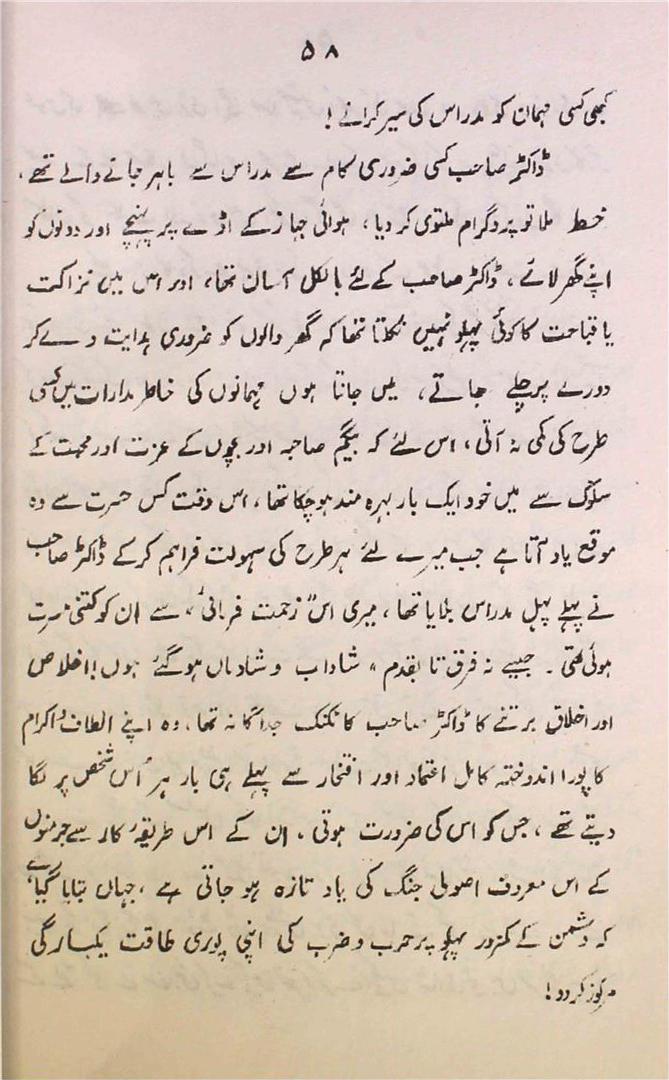 ۵۸
کبھی کسی مہمان کو مدراس کی سیر کرانے!
ڈاکٹر صاحب کسی ضروری کام سے مدراس سے باہر جانے والے تھے،
خط ملا تو پروگرام ملتوی کر دیا، ہوائی جہاز کے اڈے پر پہنچے اور دونوں کو
اپنے گھر لائے، ڈاکٹر صاحب کے لئے بالکل آسان تھا، اور اس میں نزاکت
یا قباحت کا کوئی پہلو نہیں نکلتا تھا کہ گھر والوں کو ضروری ہدایت دے کر
دورے پر چلے جاتے، میں جانتا ہوں مہمانوں کی خاطر مدارات میں کسی
طرح کی کمی نہ آتی، اس لئے کہ بیگم صاحبہ اور بچوں کے عزت اور محبت کے
سلوک سے میں خود ایک بار بہرہ مند ہو چکا تھا، اس وقت کس حسرت سے وہ
موقع یاد آتا ہے جب میرے لئے ہر طرح کی سہولت فراہم کر کے ڈاکٹر صاحب
نے پہلے پہل مدراس بلایا تھا، میری اس "زحمت فرمائی" سے ان کو کتنی مسرت
ہوئی تھی۔ جیسے نہ فرق تا بقدم "شاداب و شاداں ہو گئے ہوں! اخلاص
اور اخلاق برتنے کا ڈاکٹر صاحب کا تکنک جداگانہ تھا، وہ اپنے الطاف و اکرام
کا پورا اندوختہ کامل اعتماد اور افتخار سے پہلے ہی بار ہر اُس شخص پر لگا
دیتے تھے، جس کو اس کی ضرورت ہوتی، ان کے اس طریقۂ کار سے جرمنوں
کے اس معروف اصولِ جنگ کی یاد تازہ ہو جاتی ہے، جہاں بتایا گیا ہے
کہ دشمن کے کمزور پہلو پر حرب و ضرب کی اپنی پوری طاقت یکبارگی
مرکوز کر دو!